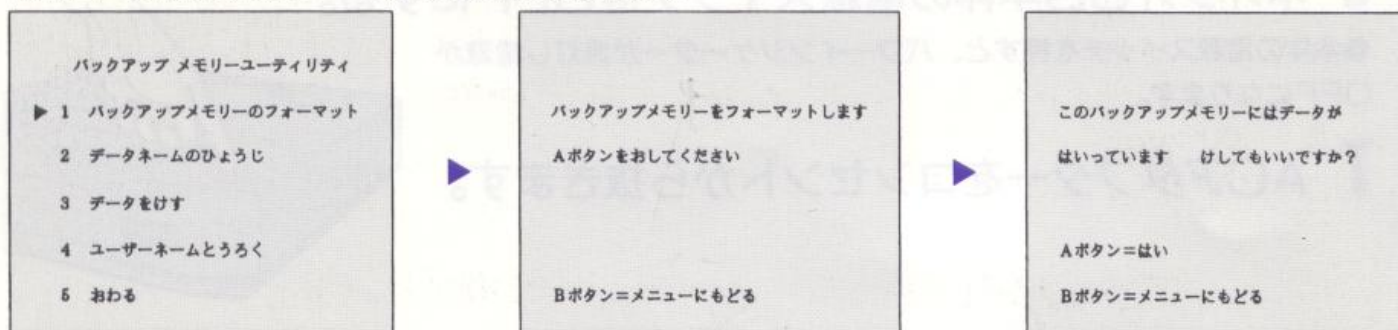 バックアップ メモリーユーティリティ
▶ 1 バックアップメモリーのフォーマット
2 データネームのひょうじ
3 データをけす
4 ユーザーネームとうろく
5 おわる
バックアップメモリーをフォーマットします
Aボタンをおしてください
Bボタン=メニューにもどる
このバックアップメモリーにはデータが
はいっています けしてもいいですか?
Aボタン=はい
Bボタン=メニューにもどる